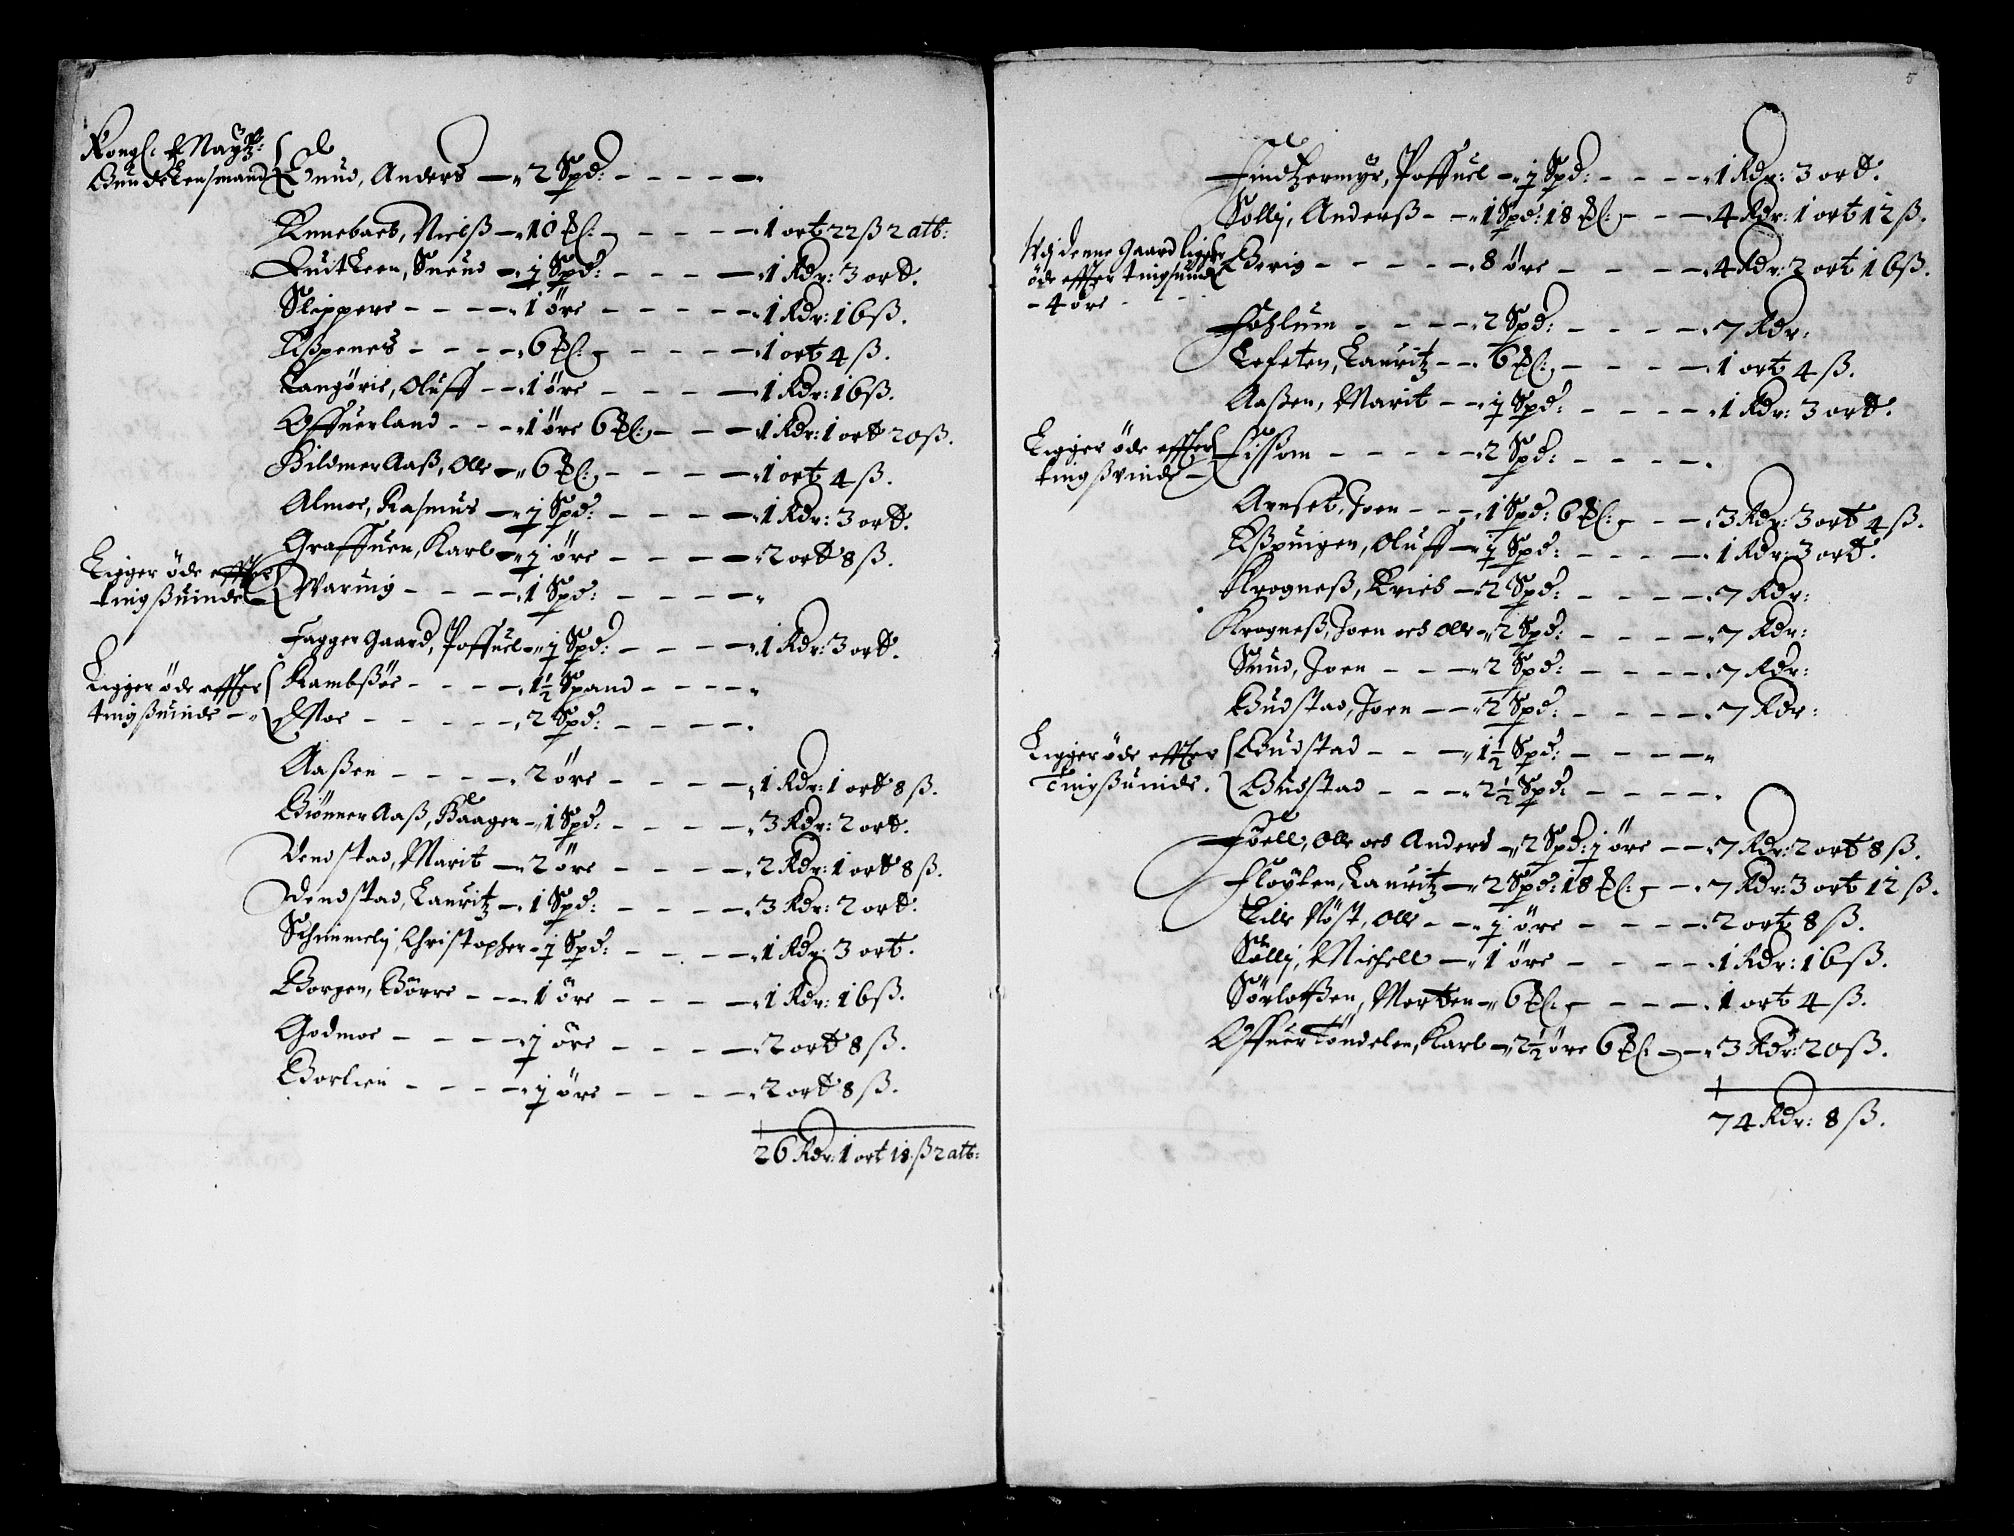 Kongl: Maytz:
Bundelensmand
Snud, Anders — 2 Spd: - - - -
Rennebaeb, Nielß — 10 ℔: - - - 1 ort 22 ß 2 alb:
Quitkeen, Sneud — ½ Spd: - - - 1 Rdr: 3 ort.
Slippere - - - 1 öre - - - 1 Rdr: 16 ß.
Eßpenes - - - 6 ℔: - - - 1 ort 4 ß.
Langörie, Oluff - - 1 öre - - - 1 Rdr: 16 ß.
Offuerland - - - 1 öre 6 ℔: - - 1 Rdr: 1 ort 20 ß.
Hildmer Aaß, Olle — 6 ℔: - - - 1 ort 4 ß.
Almoe, Rasmus — ½ Spd: - - - 1 Rdr: 3 ort.
Graffuen, Karl — ½ öre - - - 2 ort 8 ß.
Ligger öde effter
tingßuinde
Waring - - - 1 Spd: - - - -
Fagger Gaard, Poffuel - ½ Spd: - - - 1 Rdr: 3 ort.
Ligger öde effter
tingßuinde - -
Rambßöe - - - 1½ Spand - - - -
Moe - - - - 2 Spd: - - - -
Aaßen - - - - 2 öre - - - 1 Rdr: 1 ort 8 ß.
Biönner Aaß, Haagen - 1 Spd: - - - 3 Rdr: 2 ort.
Vendstad, Marit — 2 öre - - - 2 Rdr: 1 ort 8 ß.
Vendstad, Lauritz — 1 Spd: - - - 3 Rdr: 2 ort.
Schimmely, Christopher - ½ Spd: - - - 1 Rdr: 3 ort.
Borgen, Börre - - - 1 öre - - - 1 Rdr: 16 ß.
Godmoe - - - - ½ öre - - - 2 ort 8 ß.
Borlien - - - - ½ öre - - - 2 ort 8 ß.
26 Rdr: 1 ort 18 ß 2 alb:
5
Findtzermyr, Poffuel - ½ Spd: - - - 1 Rdr: 3 ort.
Solly, Anderß - - 1 Spd: 18 ℔: - - 4 Rdr: 1 ort 12 ß.
Aff denne Gaard ligger
öde effter tingßuinde
- 4 öre - - -
Berig - - - - 8 öre - - - 4 Rdr: 2 ort 16 ß.
Fohlum - - - 2 Spd: - - - 7 Rdr:
Lefeten, Lauritz - - 6 ℔: - - - 1 ort 4 ß.
Aaßen, Marit - - ½ Spd: - - - 1 Rdr: 3 ort.
Ligger öde effter
tingßvinde -
Fissom - - - - 2 Spd: - - - -
Arnset, Joen - - 1 Spd: 6 ℔: - - 3 Rdr: 3 ort 4 ß.
Eßpuigen, Oluff - ½ Spd: - - - 1 Rdr: 3 ort.
Krogneß, Krieb — 2 Spd: - - - 7 Rdr:
Krogneß, Joen och Olle - 2 Spd: - - - 7 Rdr:
Snud, Joen - - - 2 Spd: - - - 7 Rdr:
Budstad, Joen - - 2 Spd: - - - 7 Rdr:
Ligger öde effter
Tingßuinde.
Budstad - - - 1½ Spd: - - - -
Budstad - - - 2½ Spd: - - - -
Foell, Olle och Anders - 2 Spd: ½ öre - - 7 Rdr: 2 ort 8 ß.
Floyten, Lauritz - 2 Spd: 18 ℔: - - 7 Rdr: 3 ort 12 ß.
Lille Nöst, Olle - - ½ öre - - - 2 ort 8 ß.
Solly, Michell - - 1 öre - - - 1 Rdr: 16 ß.
Sörlotßen, Morten - 6 ℔: - - - 1 ort 4 ß.
Offuer Töndelen, Karl - 2½ öre 6 ℔: - - 3 Rdr: 20 ß.
74 Rdr: 8 ß.